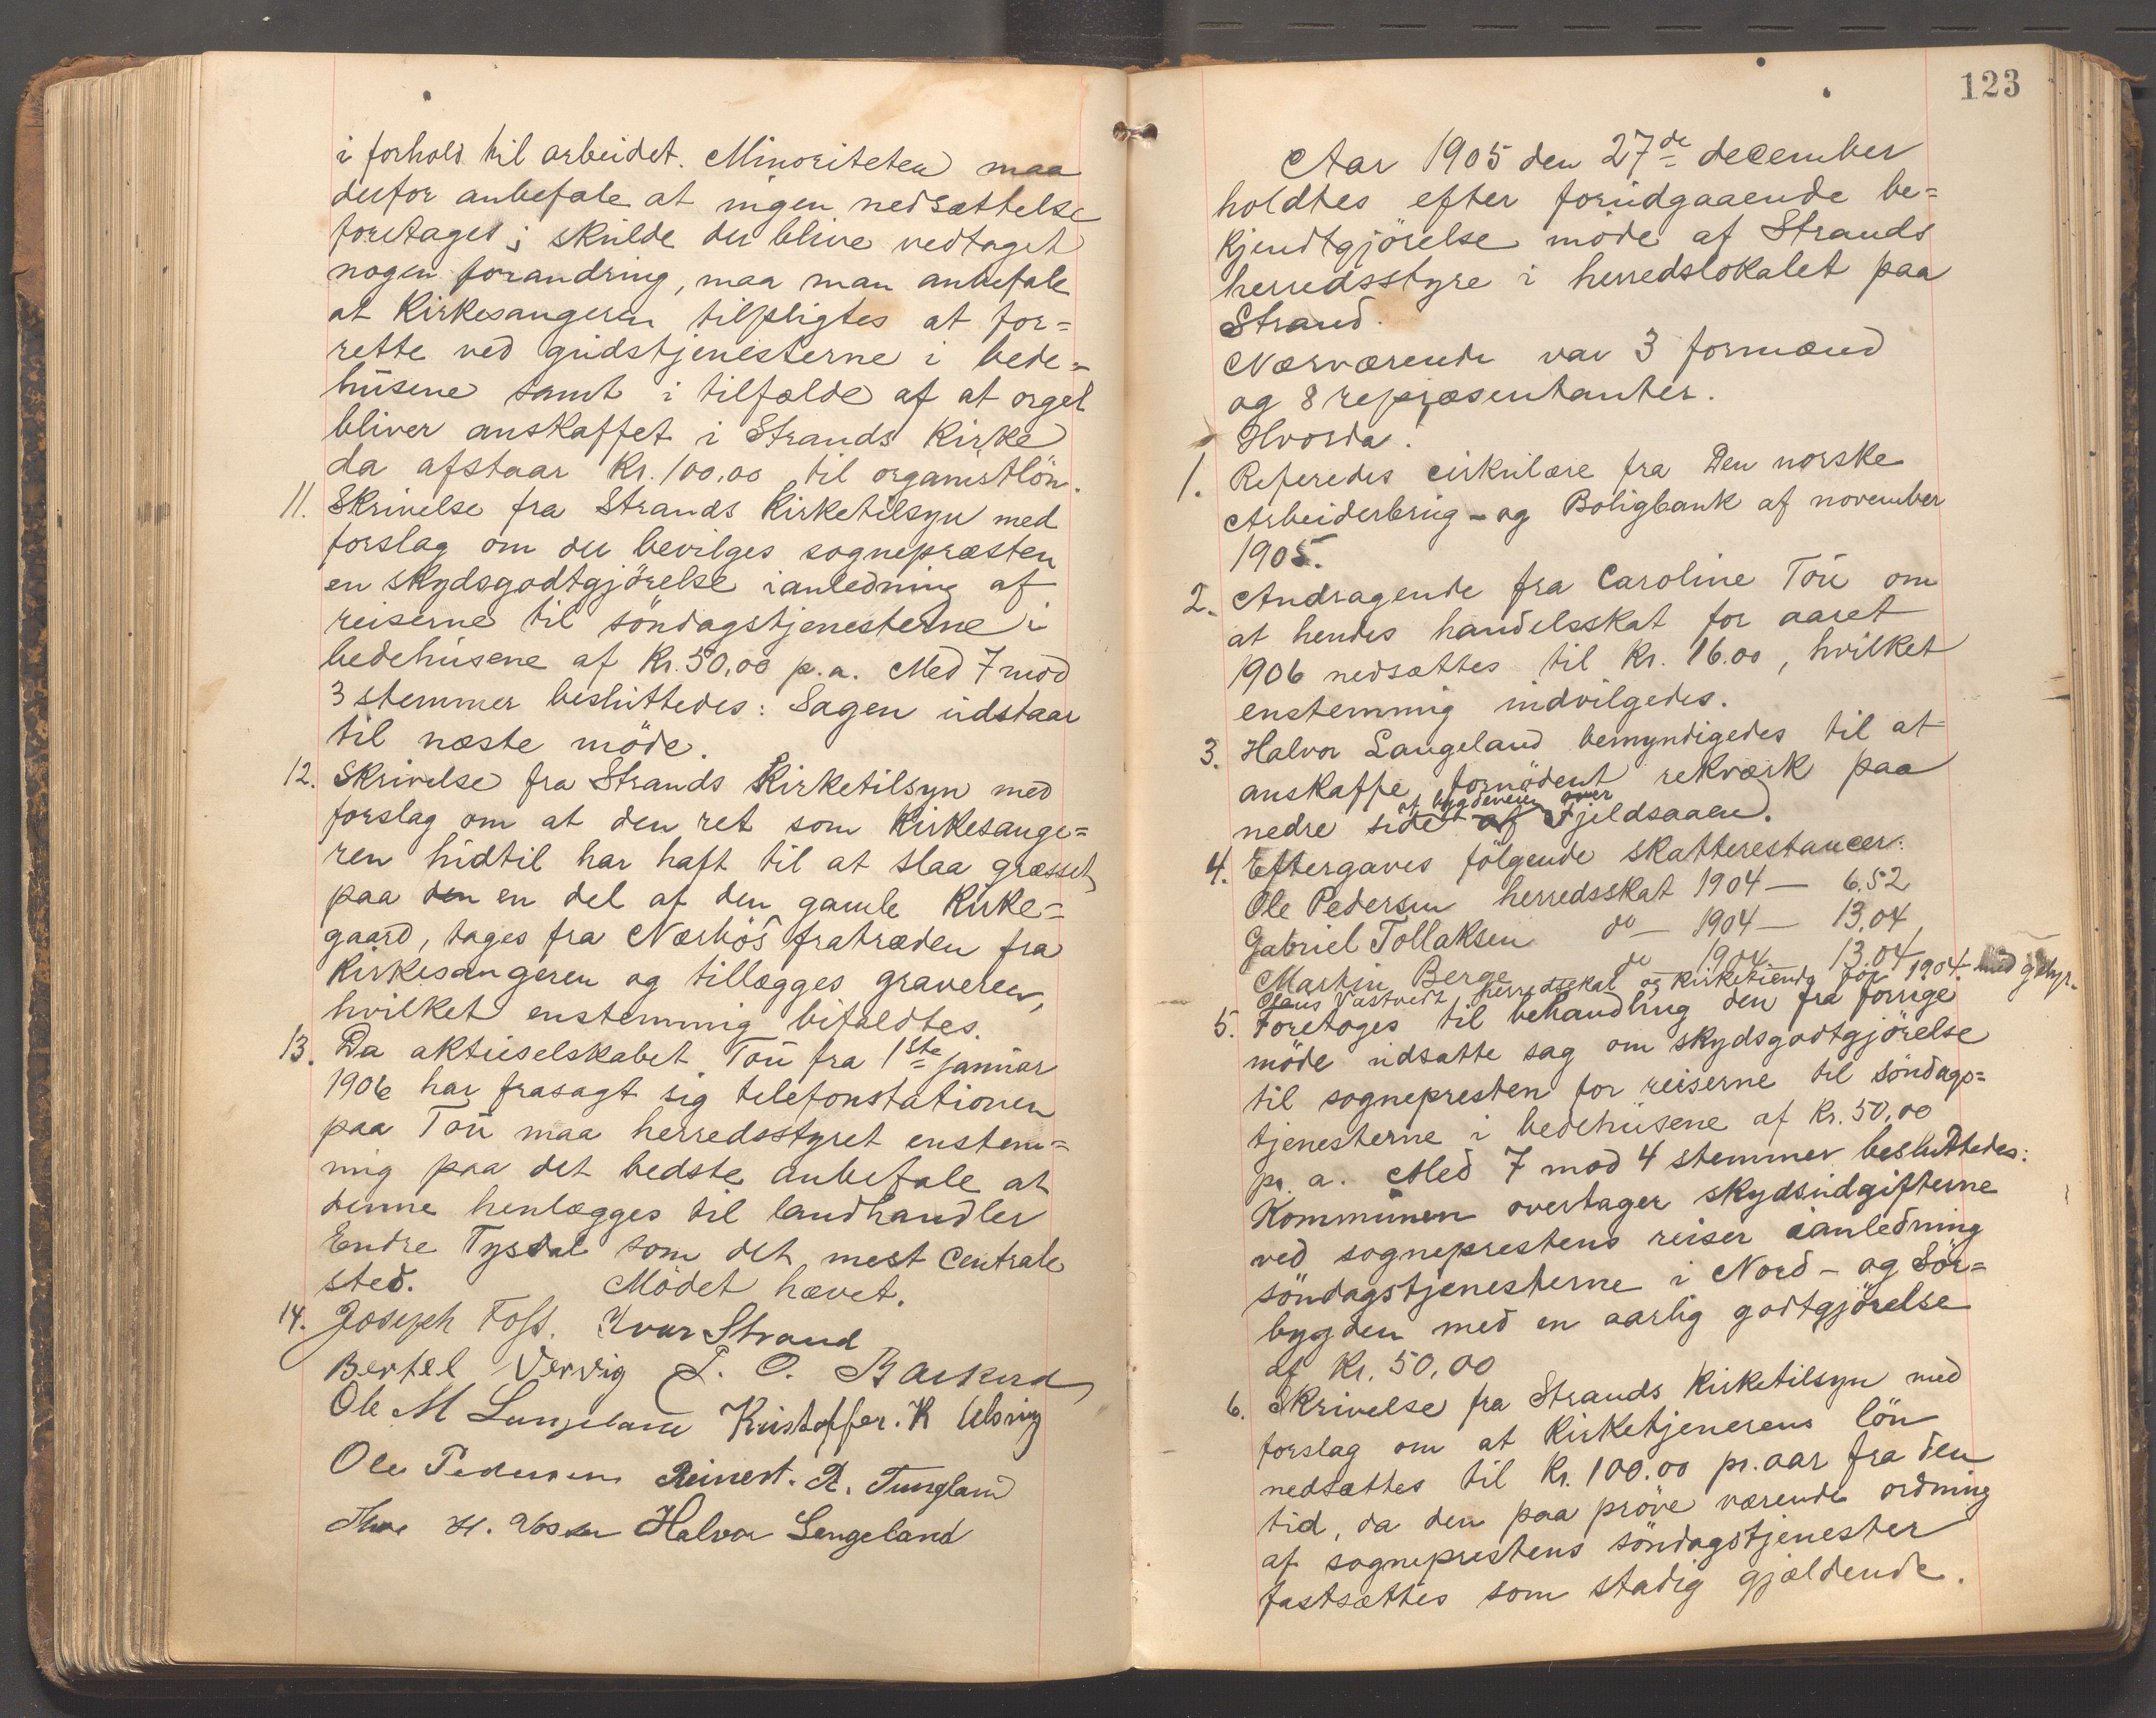 i forhold til arbeidet. Minoriteten maa
derfor anbefale at ingen nedsættelse
foretages; skulde der blive vedtaget
nogen forandring, maa man anbefale
at Kirkesangeren tilpligtes at for=
rette ved gudstjenesterne i bede=
husene samt i tilfælde af at orgel
bliver anskaffet i Strands Kirke
da afstaar Kr. 100.00 til organistlön.
11. Skrivelse fra Strands Kirketilsyn med
forslag om der bevilges sognepræsten
en skydsgodtgjörelse ianledning af
reiserne til söndagstjenesterne i
bedehusene af Kr. 50,00 p.a. Med 7 mod
3 stemmer besluttedes: Sagen udstaar
til næste möde.
12. Skrivelse fra Strands Kirketilsyn med
forslag om at den ret som Kirkesange=
ren hidtil har haft til at slaa græsset
paa den en del af den gamle Kirke=
gaard, tages fra Nærbös fratræden fra
Kirkesangeren og tillægges graveren,
hvilket enstemmig bifaldtes.
13. Da aktieselskabet Tou fra 1ste januar
1906 har frasagt sig telefonstationen
paa Tou maa herredsstyret enstem=
mig paa det bedste anbefale at
denne henlægges til landhandler
Endre Tysdal som det mest centrale
sted. Mödet hævet.
14. Joseph Foss. Ivar Strand
Bertel Vervig P. O. Barkved
Ole M Langeland Kristoffer. K Ulsvig
Ole Pedersen Reinert. R. Tungland
H. Halvor Langeland
123
Aar 1905 den 27de december
holdtes efter forudgaaende be=
kjendtgjörelse möde af Strands
herredsstyre i herredslokalet paa
Strand.
Nærværende var 3 formænd
og 8 repræsentanter.
Hvorda:
1. Referedes cirkulære fra Den norske
Arbeiderbrug- og Boligbank af november
1905.
2. Andragende fra Caroline Tou om
at hendes handelsskat for aaret
1906 nedsættes til Kr. 16.00, hvilket
enstemmig indvilgedes.
3. Halvor Langeland bemyndigedes til at
anskaffe fornödent rekværk paa
af bygdeveien over
nedre side af Fjeldsaaen.
4. Eftergaves fölgende skatterestancer:
Ole Pedersen herredsskat 1904 — 6.52
Gabriel Tollaksen do — 1904 — 13,04
Martin Berge do 1904 — 13.04
Claus Vastvedt herredsskat og Kirketiende for 1904 med gebyr.
5. Foretoges til behandling den fra forrige
möde udsatte sag om skydsgodtgjörelse
til sognepresten for reiserne til söndags=
tjenesterne i bedehusene af Kr. 50,00
pr. a. Med 7 mod 4 stemmer besluttedes:
Kommunen overtager skydsudgifterne
ved sogneprestens reiser ianledning
söndagstjenesterne i Nord- og Sör=
bygden med en aarlig godtgjörelse
af Kr. 50,00
6. Skrivelse fra Strands Kirketilsyn med
forslag om at Kirketjenerens lön
nedsættes til Kr. 100.00 pr. aar fra den
tid, da den paa pröve værende ordning
af sogneprestens söndagstjenester
fastsættes som stadig gjældende.